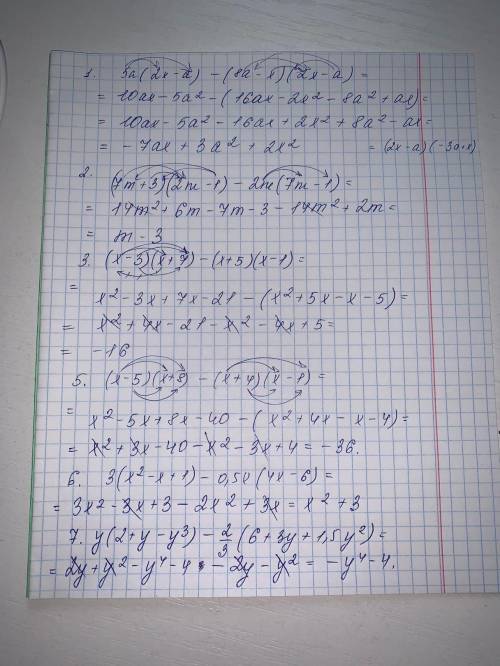 1. 5a(2x-a) - (8a-x)(2x-a) =
= 10ax - 5a² - (16ax - 2x² - 8a² + ax) =
= 10ax - 5a² - 16ax + 2x² + 8a² - ax =
= -7ax + 3a² + 2x² = (2x-a)(-3a+x)
2. (7m+3)(2m-1) - 2m(7m-1) =
= 14m² + 6m - 7m - 3 - 14m² + 2m =
= m - 3
3. (x-3)(x+7) - (x+5)(x-1) =
=
x² - 3x + 7x - 21 - (x² + 5x - x - 5) =
= x² + 4x - 21 - x² - 4x + 5 =
= -16
5. (x-5)(x+8) - (x+4)(x-1) =
=
x² - 5x + 8x - 40 - (x² + 4x - x - 4) =
= x² + 3x - 40 - x² - 3x + 4 = -36.
6. 3(x² - x + 1) - 0,5x(4x-6) =
= 3x² - 3x + 3 - 2x² + 3x = x² + 3
7. y(2+y-y³) - 2/3(6+3y+1,5y²) =
= 2y + y² - y⁴ - 4 - 2y - y² = -y⁴ - 4.